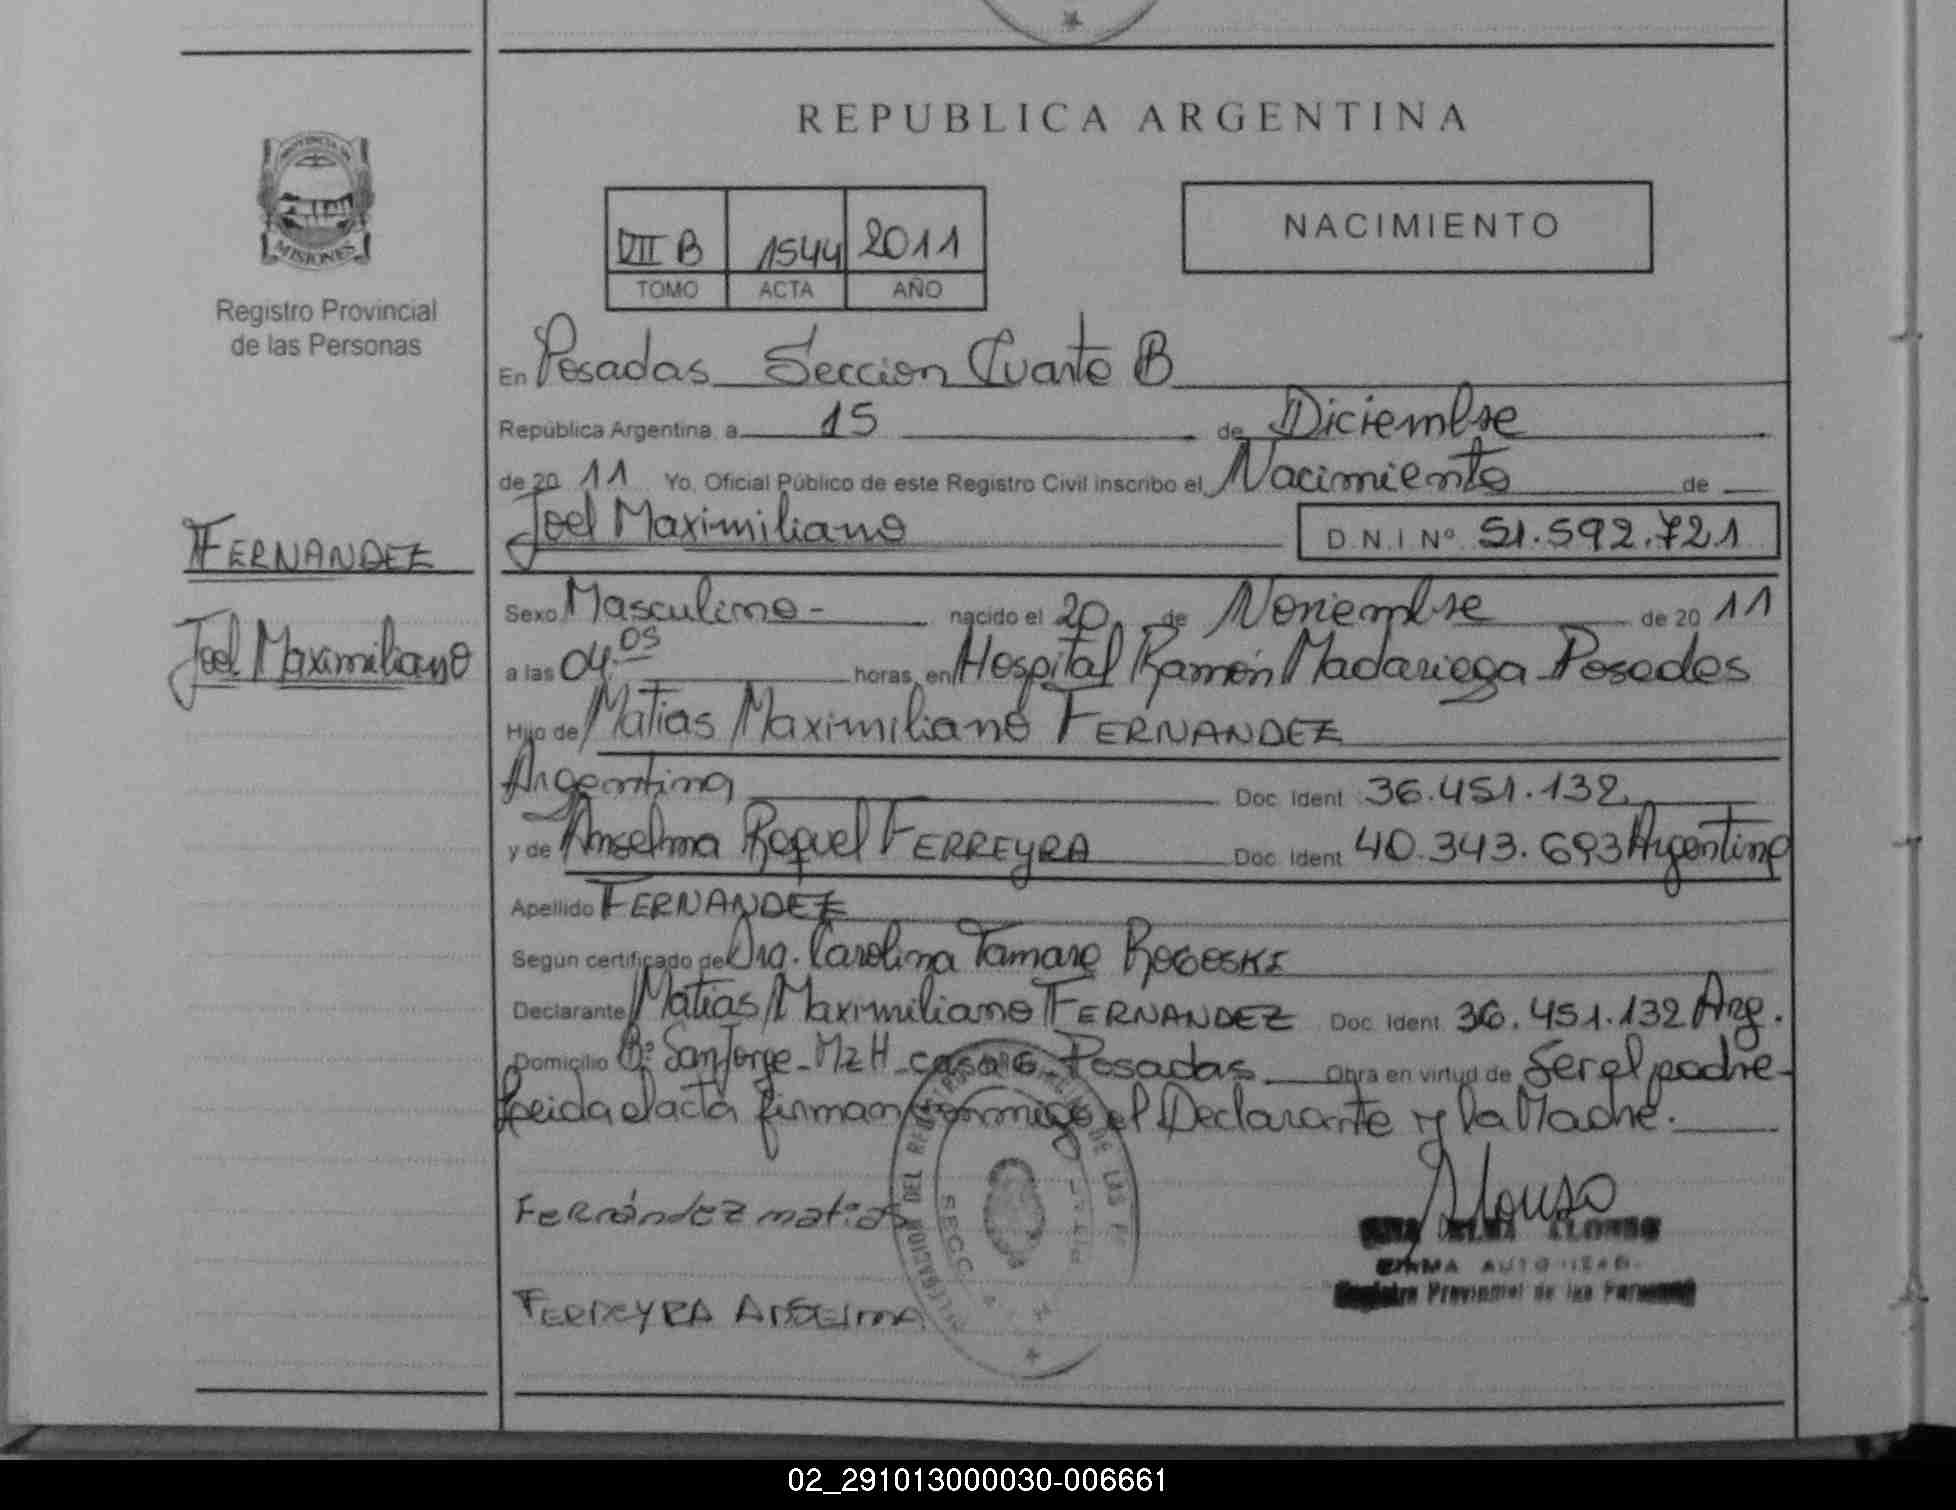 REPUBLICA ARGENTINA
PROVINCIA DE
MISIONES
Registro Provincial
de las Personas
VII B 1544 2011
TOMO ACTA AÑO
NACIMIENTO
En Posadas Seccion Cuarta B
República Argentina, a 15 de Diciembre
de 20 11 Yo, Oficial Público de este Registro Civil inscribo el Nacimiento de
Joel Maximiliano D.N.I Nº 51.592.721
FERNANDEZ
Joel Maximiliano
Sexo Masculino - nacido el 20 de Noviembre de 20 11
a las 04:05 horas, en Hospital Ramón Madariaga Posadas
Hijo de Matias Maximiliano FERNANDEZ
Argentina Doc. Ident. 36.451.132
y de Anselma Raquel FERREYRA Doc. Ident. 40.343.693 Argentina
Apellido FERNANDEZ
Según certificado de Dra. Carolina Tamara ROGOSKI
Declarante Matias Maximiliano FERNANDEZ Doc. Ident. 36.451.132 Arg.
Domicilio Bº San Jorge - Mz H - casa 6 - Posadas Obra en virtud de Ser el padre -
Leida el acta firman conmigo el Declarante y la Madre.
Fernández matias
FERREYRA ANSELMA
Alonso
ALONSO
FIRMA AUTORIZAD.
Registro Provincial de las Personas
DEL
DE LAS
SECC.
02_291013000030-006661